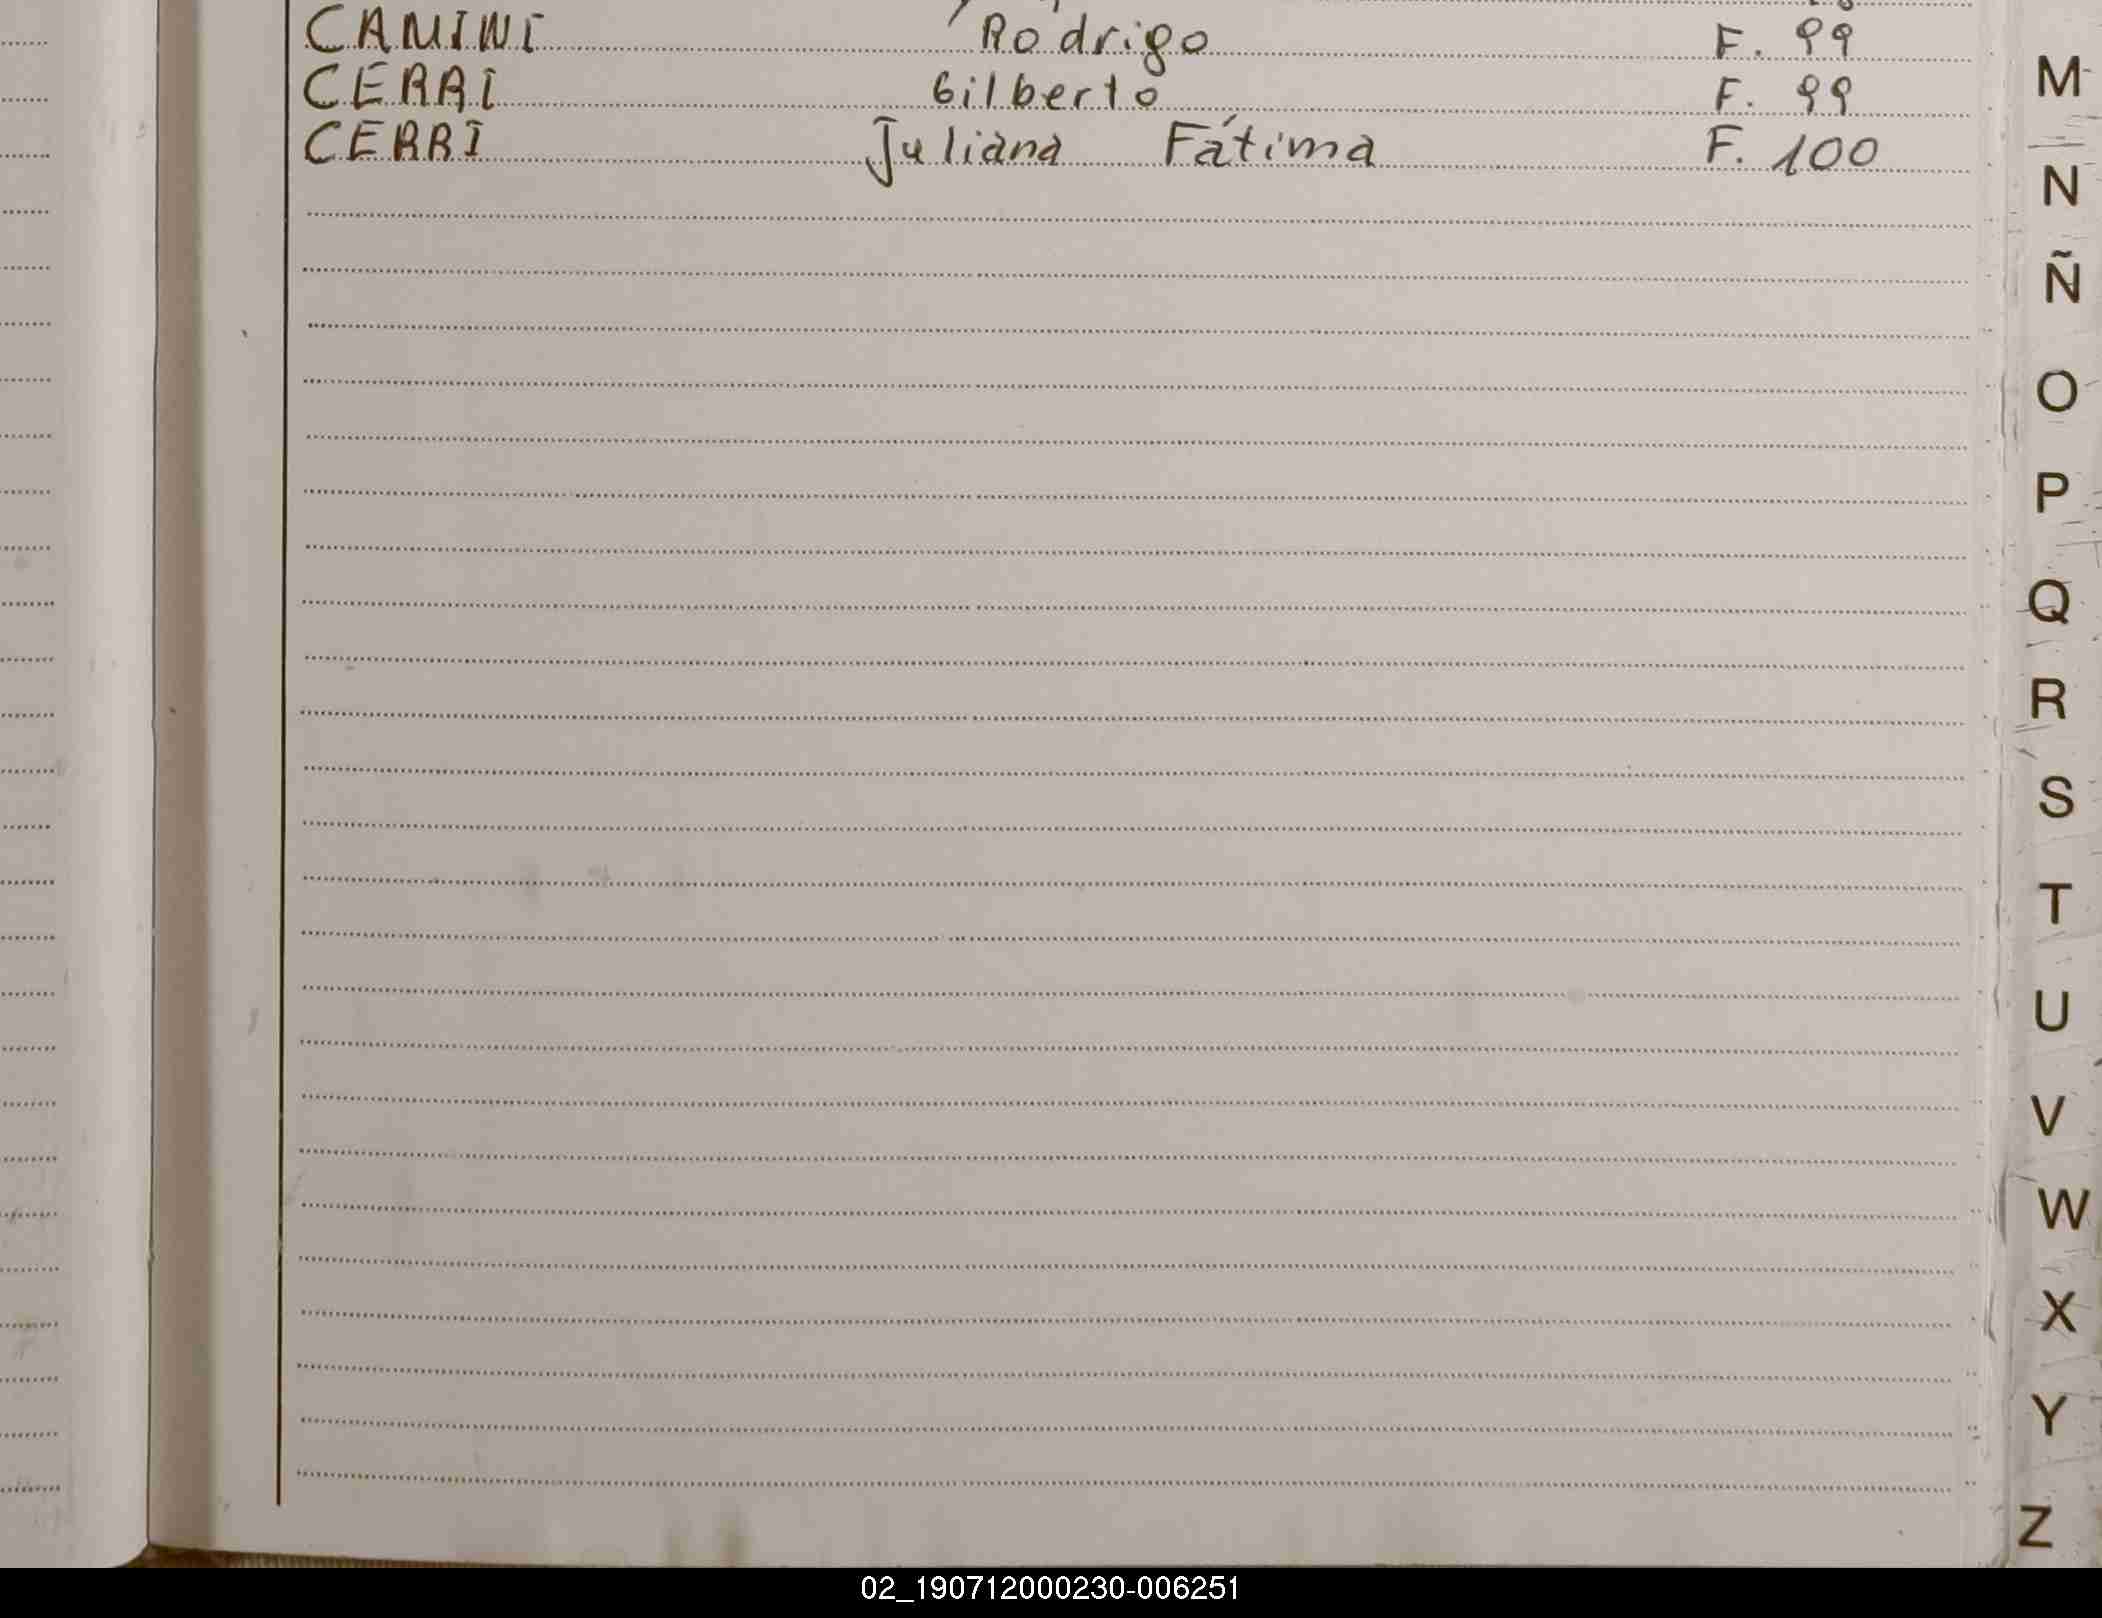 CAMINI Rodrigo F. 99
CERRI Gilberto F. 99
CERRI Juliana Fátima F. 100
M
N
Ñ
O
P
Q
R
S
T
U
V
W
X
Y
Z
02_190712000230-006251